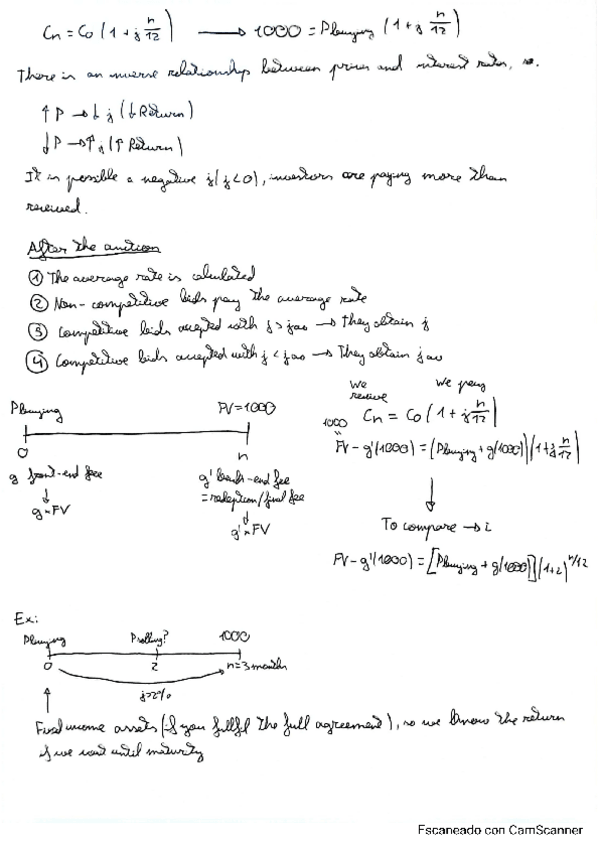 Cn = Co (1 + j n/12) → 1000 = Pbuying (1 + j n/12)
There is an inverse relationship between prices and interest rates, so.
↑P → ↓j (↓Return)
↓P → ↑j (↑Return)
It is possible a negative j (j<0), investors are paying more than
received.
After the auction
① The average rate is calculated
② Non-competitive bids pay the average rate
③ Competitive bids accepted with j > jav → They obtain j
④ Competitive bids accepted with j < jav → They obtain jav
Pbuying FV=1000
0 n
g front-end fee
↓
g·FV
g' back-end fee
= /final fee
↓
g'·FV
We receive We pay
Cn = Co (1 + j n/12)
1000
FV - g'(1000) = (Pbuying + g(1000)) (1 + j n/12)
↓
To compare → i
FV - g'(1000) = [Pbuying + g(1000)] (1+i)^n/12
Ex:
Pbuying Pselling? 1000
0 2 n=3 months
j=2%
↑
Fixed income assets (if you fullfil the full agreement), so we know the return
if we wait until maturity
Escaneado con CamScanner